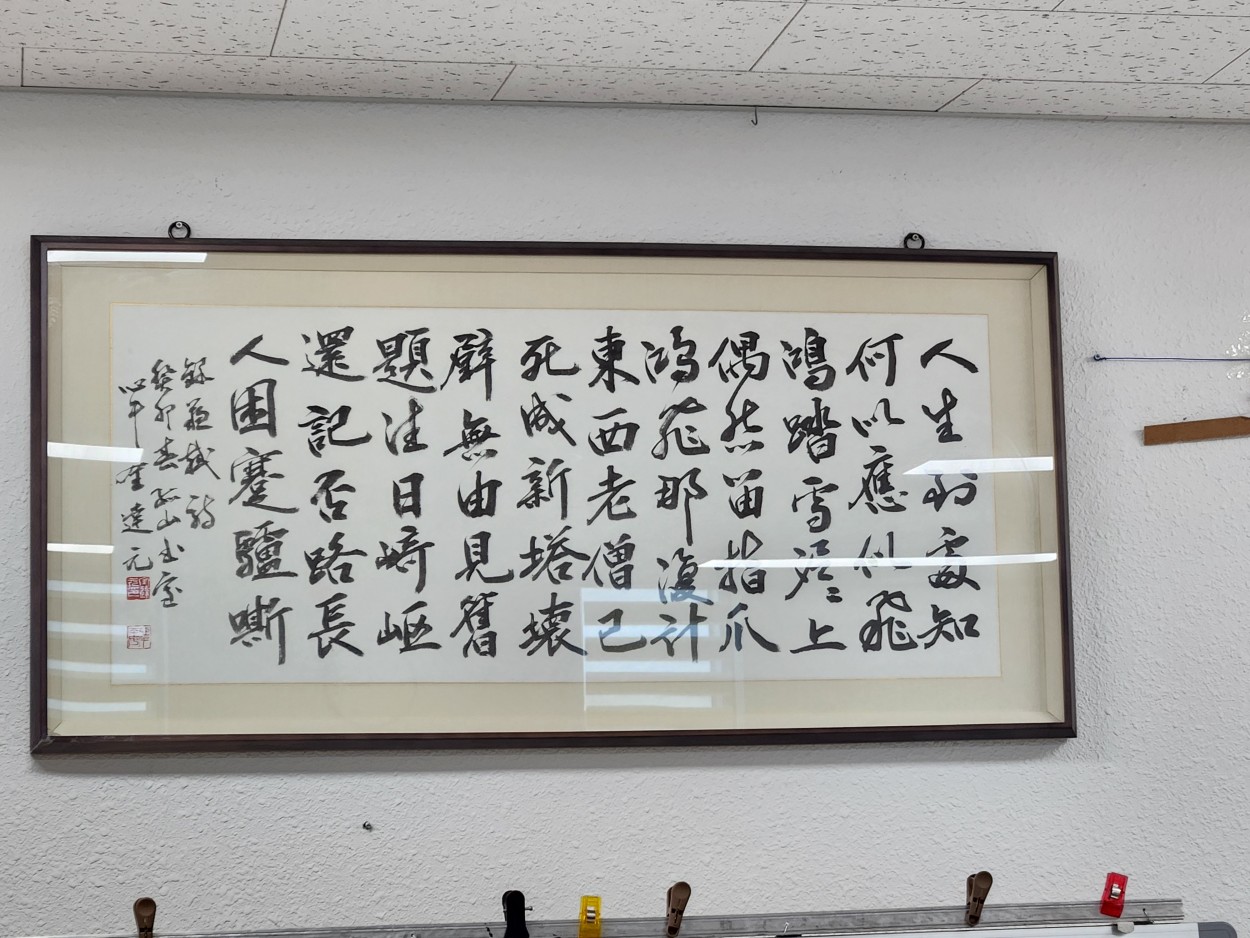 人生到處知
何以應似飛
鴻踏雪泥〻上
偶然留指爪
鴻飛那復計
東西老僧已
死成新塔壞
壁無由見舊
題往日崎嶇
還記否路長
人困蹇驢嘶
錄蘇軾詩
癸卯春 山书室
心千 崔達元